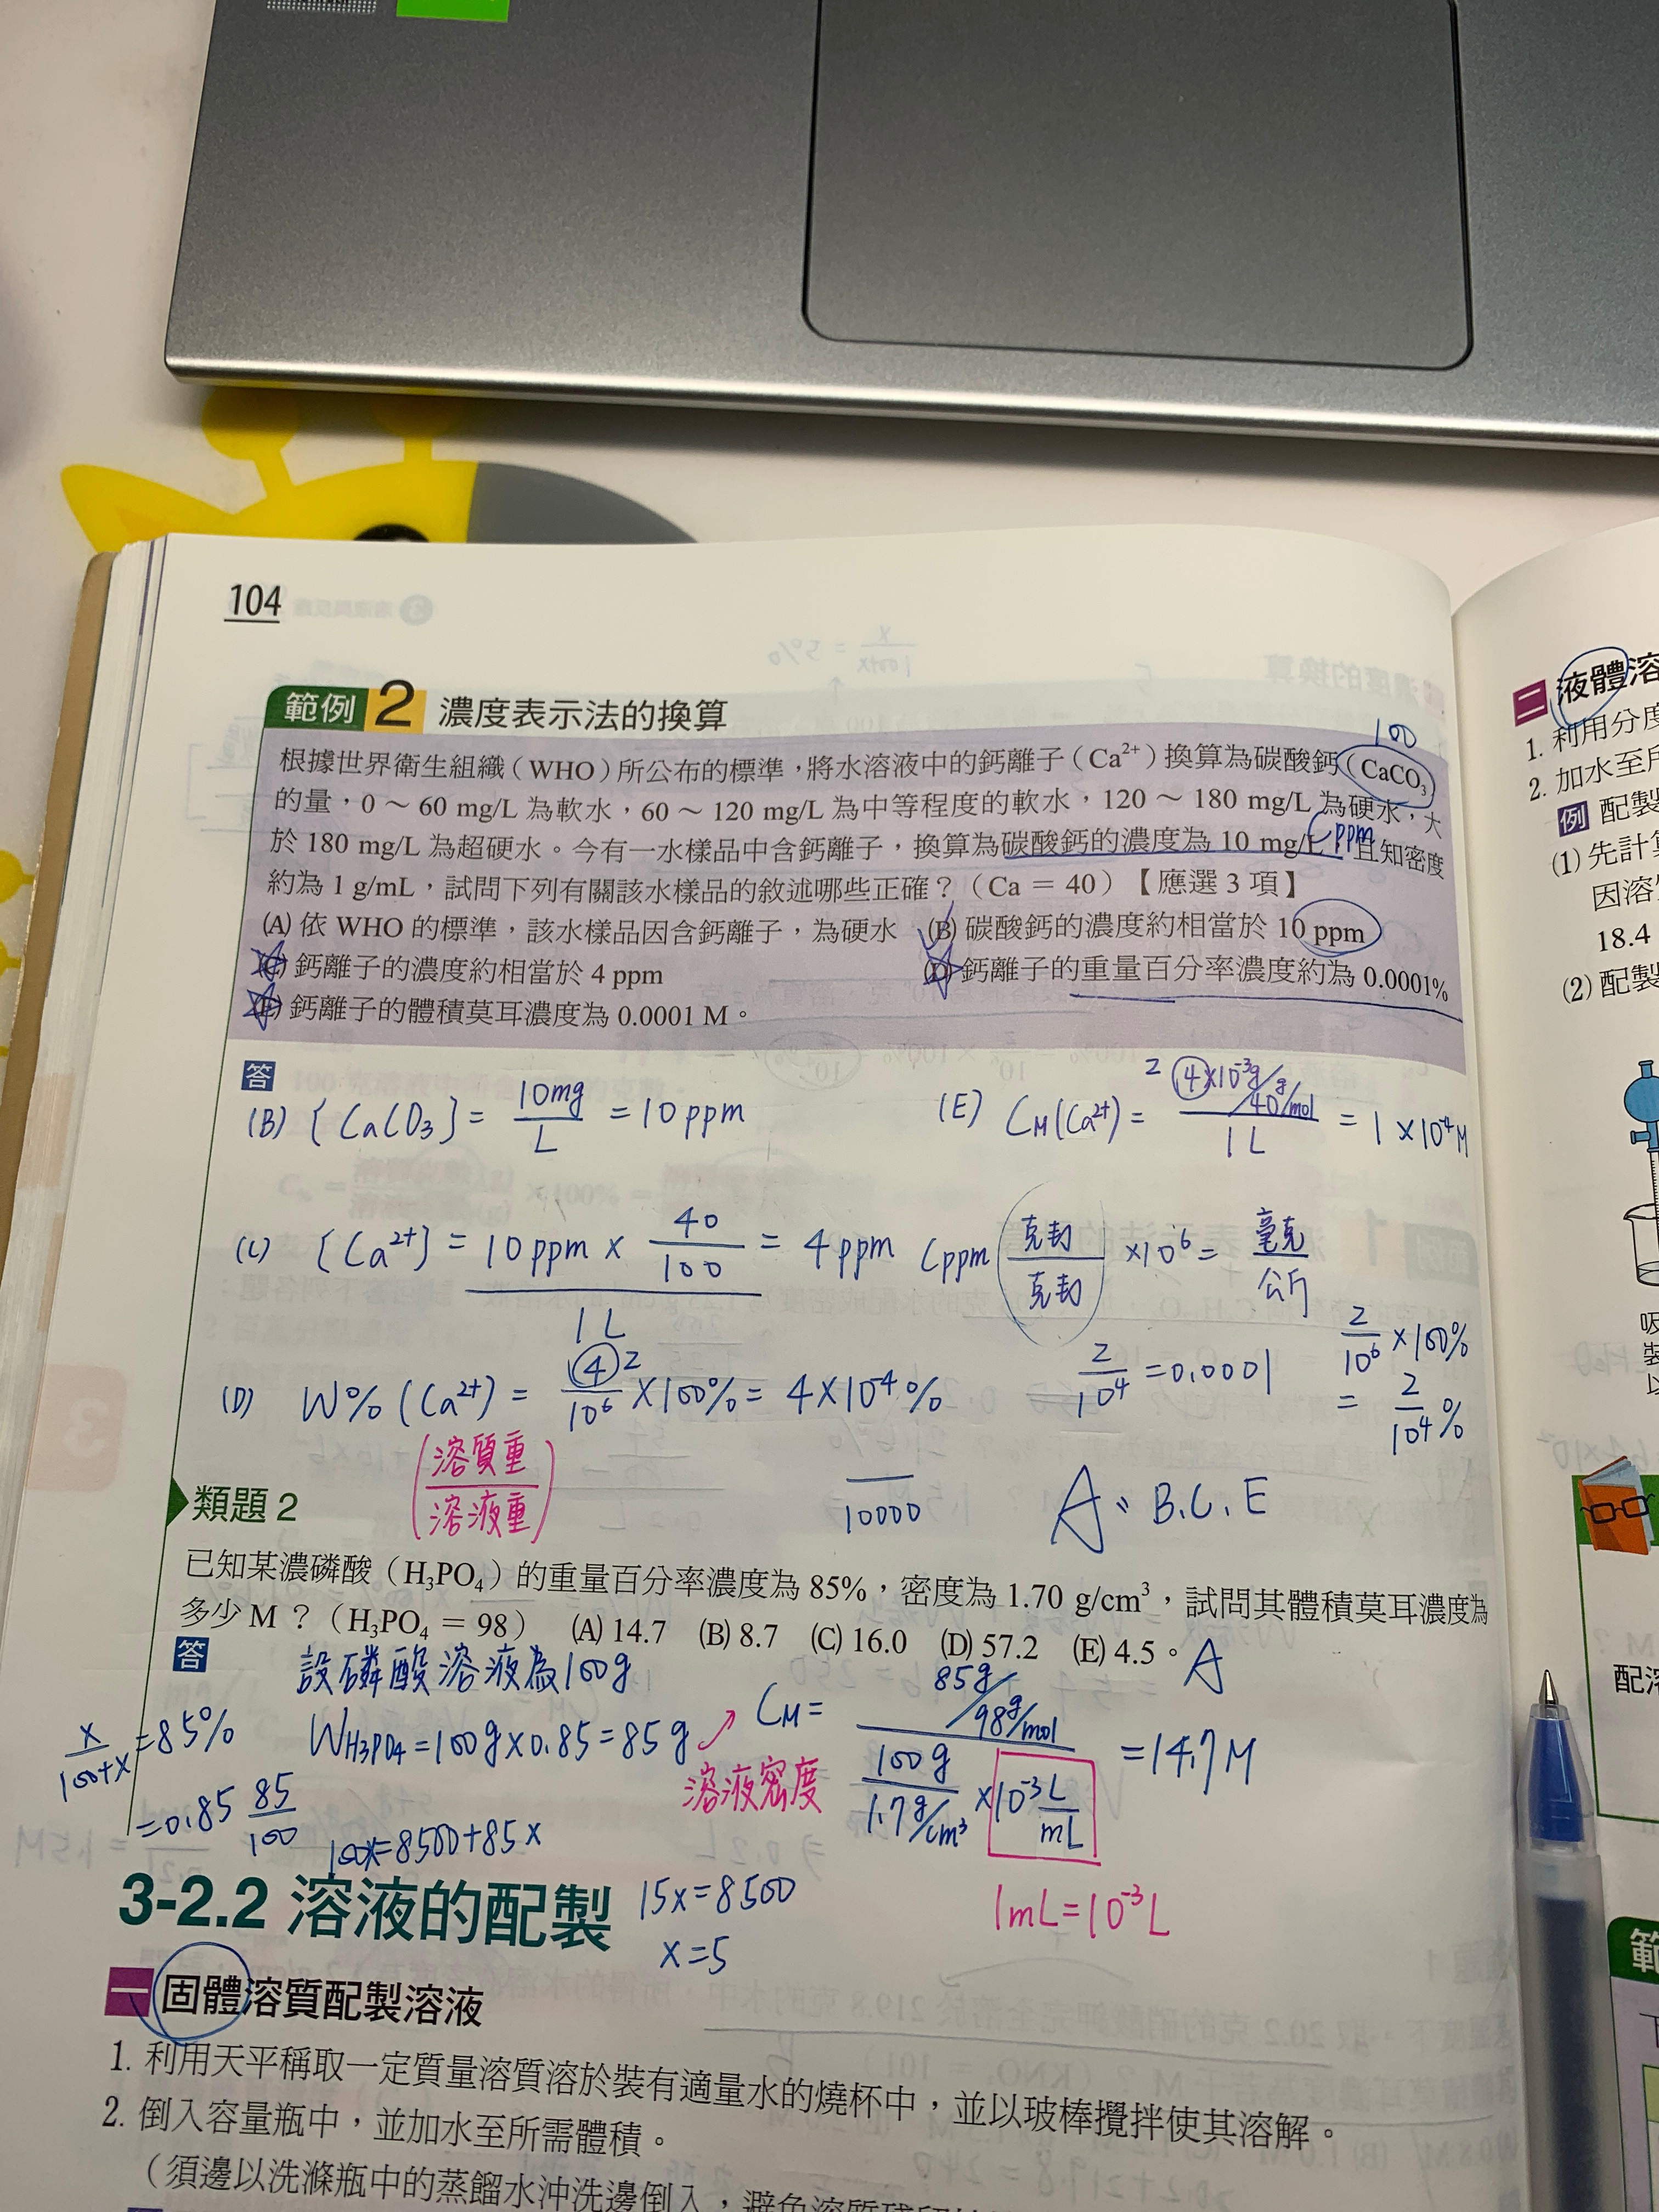 104
範例 2 濃度表示法的換算
100
根據世界衛生組織(WHO)所公布的標準,將水溶液中的鈣離子(Ca²⁺)換算為碳酸鈣(CaCO₃)
的量,0～60 mg/L 為軟水,60～120 mg/L 為中等程度的軟水,120～180 mg/L 為硬水,大
於 180 mg/L 為超硬水。今有一水樣品中含鈣離子,換算為碳酸鈣的濃度為 10 mg/L,且知密度
Cppm
約為 1 g/mL,試問下列有關該水樣品的敘述哪些正確?(Ca = 40)【應選 3 項】
(A) 依 WHO 的標準,該水樣品因含鈣離子,為硬水 (B) 碳酸鈣的濃度約相當於 10 ppm
(C) 鈣離子的濃度約相當於 4 ppm (D) 鈣離子的重量百分率濃度約為 0.0001%
(E) 鈣離子的體積莫耳濃度為 0.0001 M。
答
(B) [CaCO₃] = 10mg/L = 10ppm
(E) CM(Ca²⁺) = 2 4×10⁻³g/40g/mol / 1L = 1×10⁻⁴M
(C) [Ca²⁺] = 10ppm × 40/100 / 1L = 4ppm
Cppm 克劑/克劑 ×10⁶ = 毫克/公斤
(D) W% (Ca²⁺) = 4 2/10⁶ ×100% = 4×10⁻⁴%
2/10⁴ = 0.0001
2/10⁶ ×100%
= 2/10⁴ %
(溶質重/溶液重)
/10000
A: B.C.E
類題 2
已知某濃磷酸(H₃PO₄)的重量百分率濃度為 85%,密度為 1.70 g/cm³,試問其體積莫耳濃度為
多少 M?(H₃PO₄ = 98) (A) 14.7 (B) 8.7 (C) 16.0 (D) 57.2 (E) 4.5。 A
答
設磷酸溶液為100g
WH₃PO₄ = 100g×0.85 = 85g
溶液密度
CM = 85g/98g/mol / 100g/1.7g/cm³ ×10⁻³ L/mL = 14.7M
1mL=10⁻³L
x/100+x = 85%
=0.85 85/100
100x=8500+85x
15x=8500
x=5
3-2.2 溶液的配製
一 固體溶質配製溶液
1. 利用天平稱取一定質量溶質溶於裝有適量水的燒杯中,並以玻棒攪拌使其溶解。
2. 倒入容量瓶中,並加水至所需體積。
(須邊以洗滌瓶中的蒸餾水沖洗邊倒入,避免溶質殘留
二 液體溶
1. 利用分度
2. 加水至所
例 配製
(1) 先計算
因溶質
18.4
(2) 配製
吸
裝
以
配溶
範